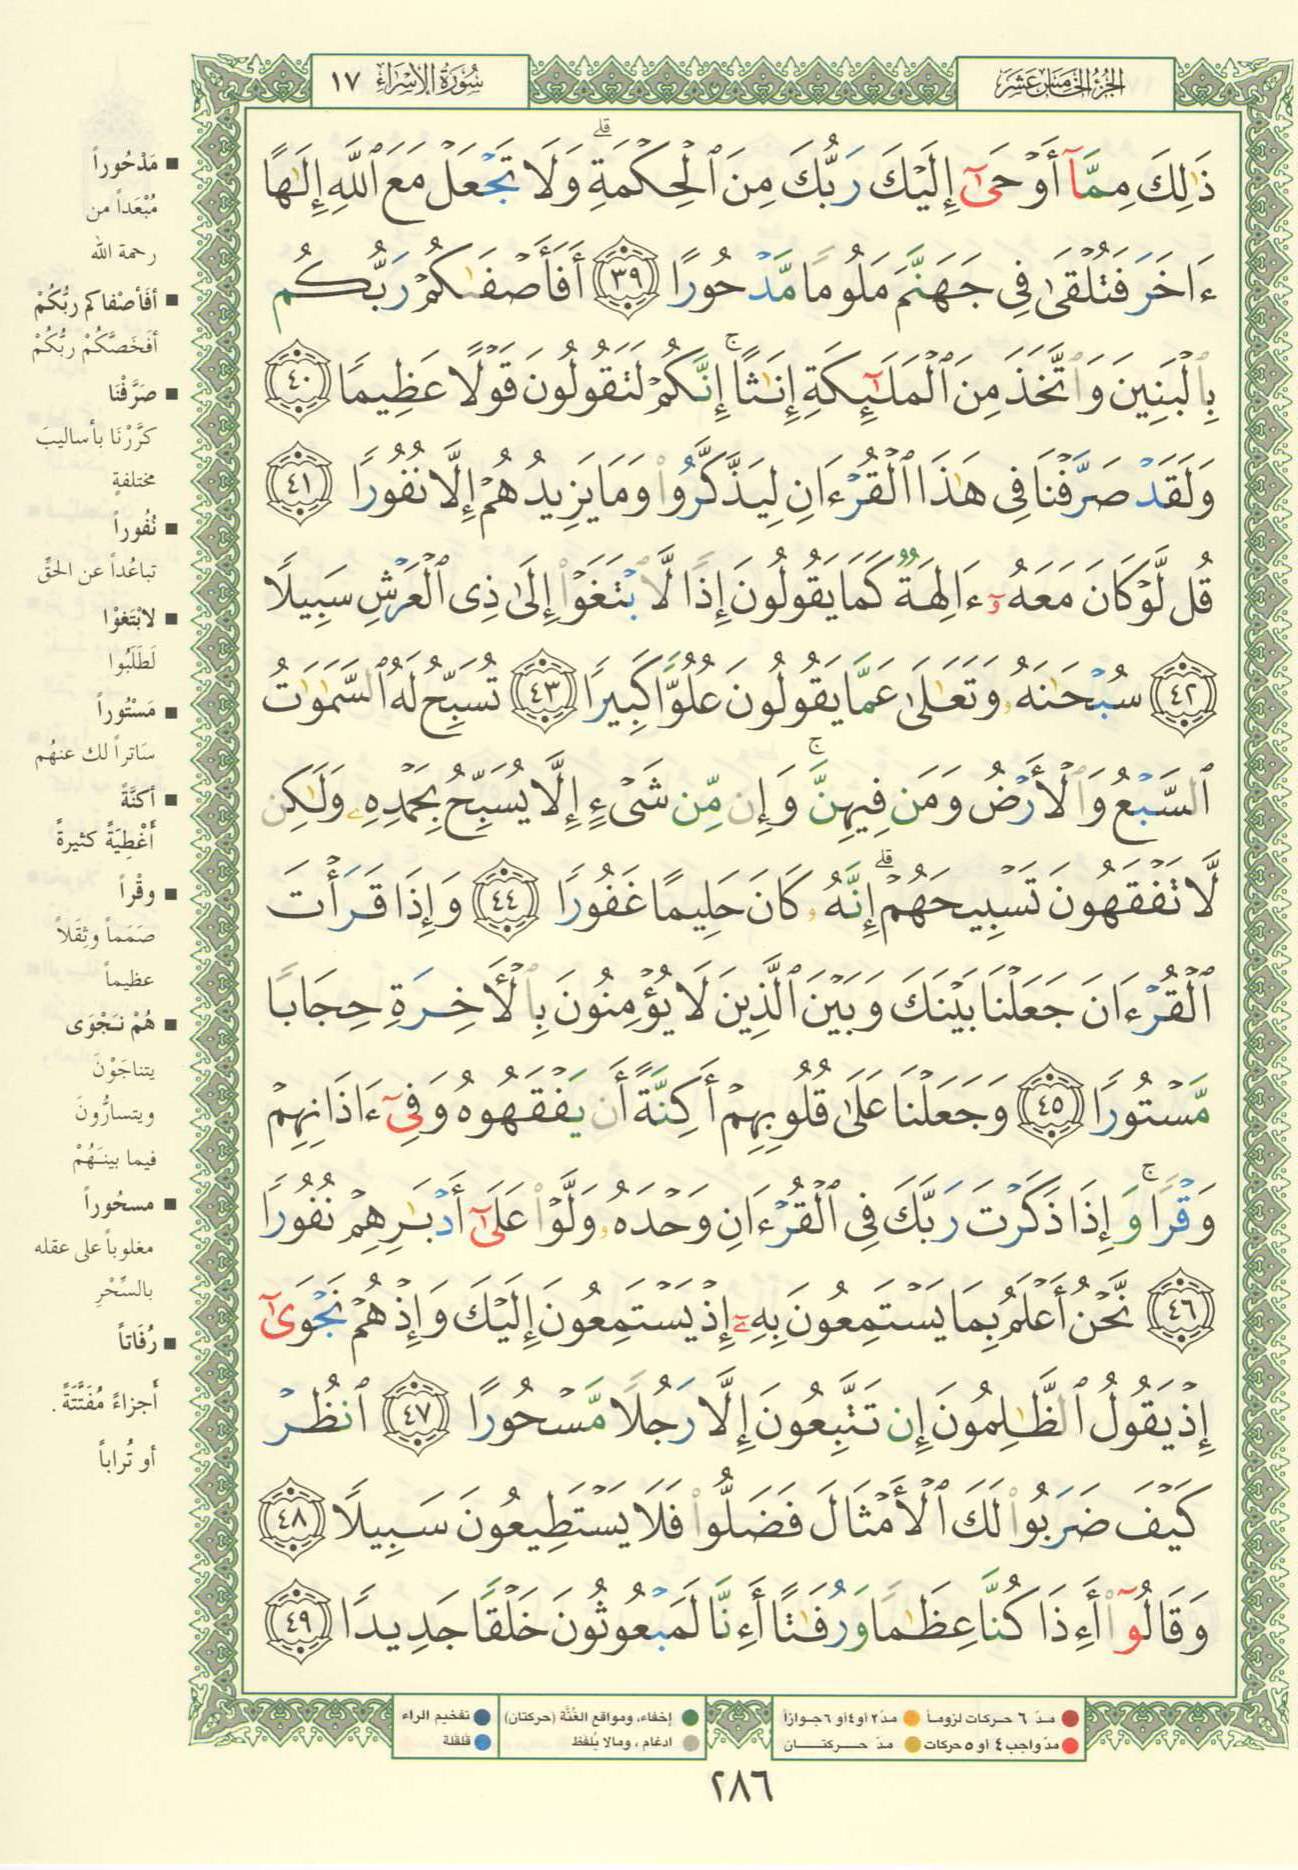 الجزء الخامس عشر
سورة الإسراء ١٧
ذَٰلِكَ مِمَّآ أَوْحَىٰٓ إِلَيْكَ رَبُّكَ مِنَ ٱلْحِكْمَةِ ۗ وَلَا تَجْعَلْ مَعَ ٱللَّهِ إِلَٰهًا
ءَاخَرَ فَتُلْقَىٰ فِى جَهَنَّمَ مَلُومًا مَّدْحُورًا ﴿٣٩﴾ أَفَأَصْفَىٰكُمْ رَبُّكُم
بِٱلْبَنِينَ وَٱتَّخَذَ مِنَ ٱلْمَلَٰٓئِكَةِ إِنَٰثًا ۚ إِنَّكُمْ لَتَقُولُونَ قَوْلًا عَظِيمًا ﴿٤٠﴾
وَلَقَدْ صَرَّفْنَا فِى هَٰذَا ٱلْقُرْءَانِ لِيَذَّكَّرُوا۟ وَمَا يَزِيدُهُمْ إِلَّا نُفُورًا ﴿٤١﴾
قُل لَّوْ كَانَ مَعَهُۥٓ ءَالِهَةٌ كَمَا يَقُولُونَ إِذًا لَّٱبْتَغَوْا۟ إِلَىٰ ذِى ٱلْعَرْشِ سَبِيلًا
﴿٤٢﴾ سُبْحَٰنَهُۥ وَتَعَٰلَىٰ عَمَّا يَقُولُونَ عُلُوًّا كَبِيرًا ﴿٤٣﴾ تُسَبِّحُ لَهُ ٱلسَّمَٰوَٰتُ
ٱلسَّبْعُ وَٱلْأَرْضُ وَمَن فِيهِنَّ ۚ وَإِن مِّن شَىْءٍ إِلَّا يُسَبِّحُ بِحَمْدِهِۦ وَلَٰكِن
لَّا تَفْقَهُونَ تَسْبِيحَهُمْ ۗ إِنَّهُۥ كَانَ حَلِيمًا غَفُورًا ﴿٤٤﴾ وَإِذَا قَرَأْتَ
ٱلْقُرْءَانَ جَعَلْنَا بَيْنَكَ وَبَيْنَ ٱلَّذِينَ لَا يُؤْمِنُونَ بِٱلْأَخِرَةِ حِجَابًا
مَّسْتُورًا ﴿٤٥﴾ وَجَعَلْنَا عَلَىٰ قُلُوبِهِمْ أَكِنَّةً أَن يَفْقَهُوهُ وَفِىٓ ءَاذَانِهِمْ
وَقْرًا ۚ وَإِذَا ذَكَرْتَ رَبَّكَ فِى ٱلْقُرْءَانِ وَحْدَهُۥ وَلَّوْا۟ عَلَىٰٓ أَدْبَٰرِهِمْ نُفُورًا
﴿٤٦﴾ نَّحْنُ أَعْلَمُ بِمَا يَسْتَمِعُونَ بِهِۦٓ إِذْ يَسْتَمِعُونَ إِلَيْكَ وَإِذْ هُمْ نَجْوَىٰٓ
إِذْ يَقُولُ ٱلظَّٰلِمُونَ إِن تَتَّبِعُونَ إِلَّا رَجُلًا مَّسْحُورًا ﴿٤٧﴾ ٱنظُرْ
كَيْفَ ضَرَبُوا۟ لَكَ ٱلْأَمْثَالَ فَضَلُّوا۟ فَلَا يَسْتَطِيعُونَ سَبِيلًا ﴿٤٨﴾
وَقَالُوٓا۟ أَءِذَا كُنَّا عِظَٰمًا وَرُفَٰتًا أَءِنَّا لَمَبْعُوثُونَ خَلْقًا جَدِيدًا ﴿٤٩﴾
■ مَدْحُوراً
مُبْعَداً من
رحمة الله
■ أفَأصْفاكم ربُّكُمْ
أفَخَصَّكُمْ ربُّكُمْ
■ صَرَّفْنَا
كرَّرْنَا بأساليبَ
مختلفةٍ
■ نُفُوراً
تباعُداً عن الحقِّ
■ لابْتَغَوْا
لَطَلَبُوا
■ مَسْتُوراً
سَاتراً لك عنهُم
■ أكنَّةً
أغْطِيَةً كثيرةً
■ وقْراً
صَمَماً وثِقَلاً
عظيماً
■ هُمْ نَجْوَى
يتناجَوْنَ
ويتسارُّونَ
فيما بينَهُمْ
■ مسحُوراً
مغلوباً على عقله
بالسِّحْرِ
■ رُفَاتاً
أجزاءً مُفَتَّتَةً .
أو تُراباً
مدّ ٦ حركات لزوماً مدّ ٢ أو ٤ أو ٦ جوازاً إخفاء، ومواقع الغُنَّة (حركتان) تفخيم الراء
مدّ واجب ٤ أو ٥ حركات مدّ حركتان ادغام ، ومالا يُلفظ قلقلة
٢٨٦